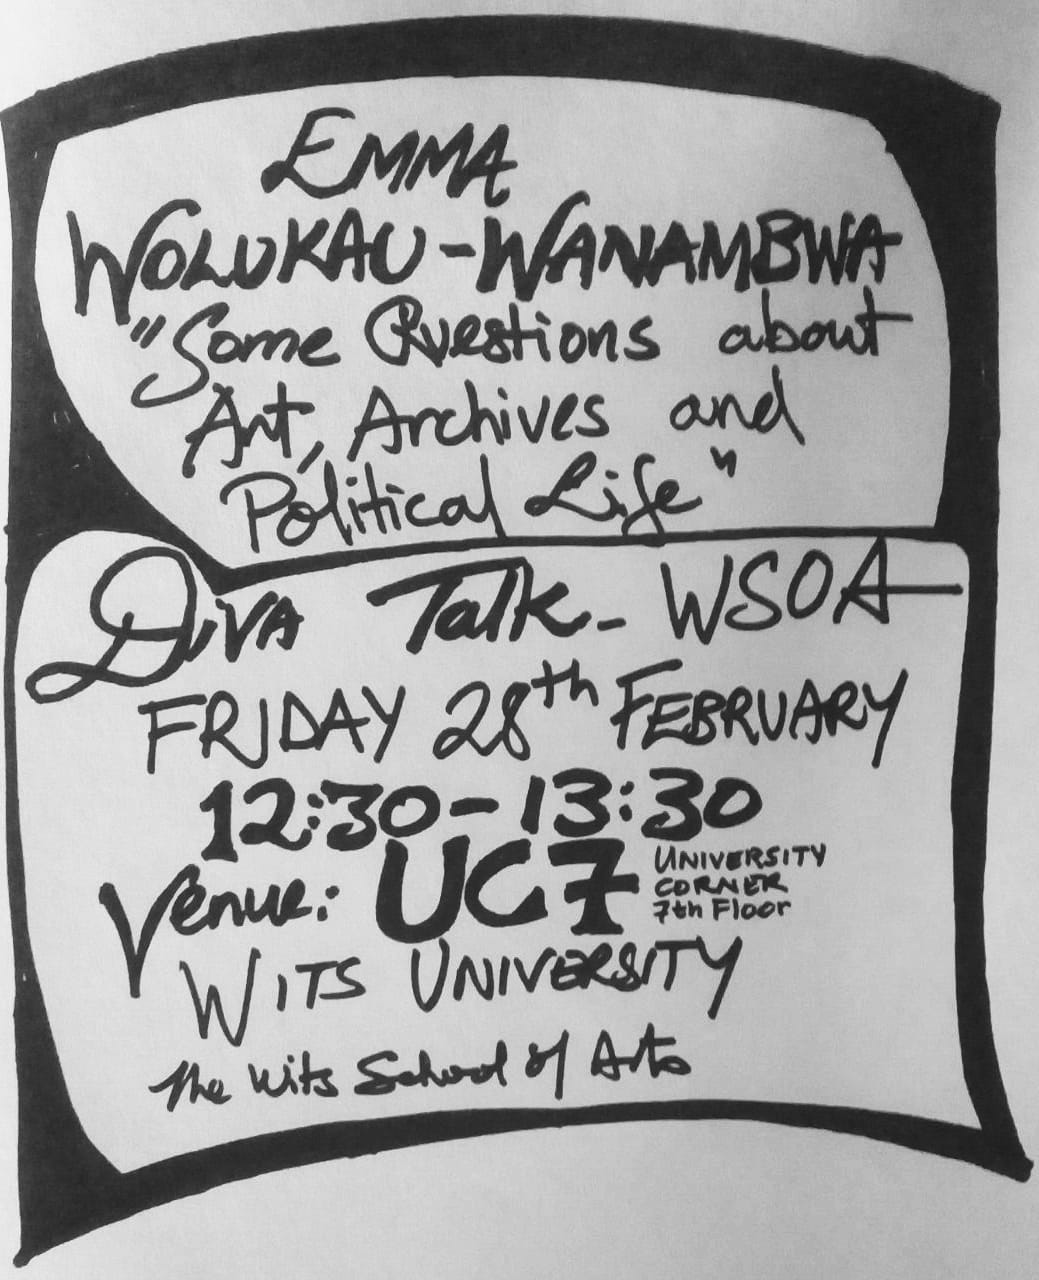 EMMA
WOLUKAU-WANAMBWA
"Some Questions about
Art, Archives and
Political Life"
DIVA Talk - WSOA
FRIDAY 28th FEBRUARY
12:30-13:30
Venue: UC7 UNIVERSITY
CORNER
7th FLOOR
WITS UNIVERSITY
The Wits School of Arts